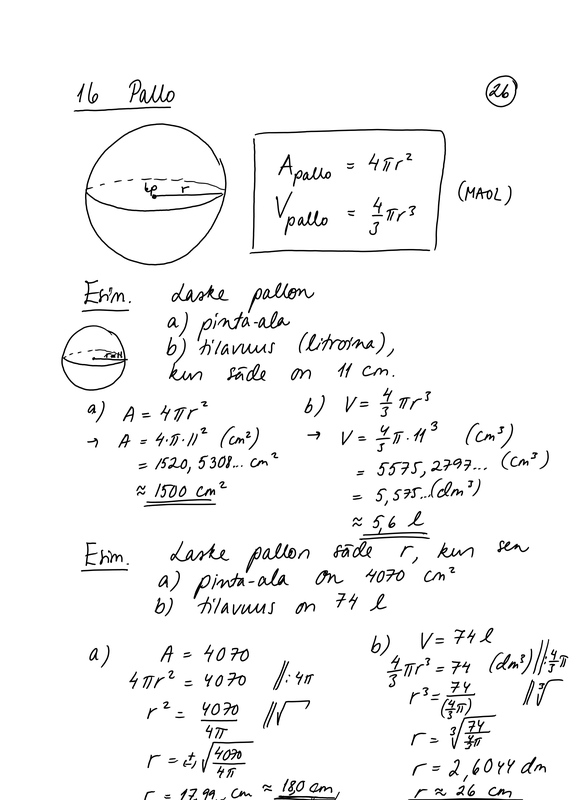 16 Pallo
26
kp r
A pallo = 4πr²
V pallo = 4/3 πr³
(MAOL)
Esim. Laske pallon
a) pinta-ala
b) tilavuus (litroina),
kun säde on 11 cm.
a) A = 4πr²
→ A = 4·π·11² (cm²)
= 1520,5308... cm²
≈ 1500 cm²
b) V = 4/3 πr³
→ V = 4/3 π·11³ (cm³)
= 5575,2797... (cm³)
= 5,575...(dm³)
≈ 5,6 l
Esim. Laske pallon säde r, kun sen
a) pinta-ala on 4070 cm²
b) tilavuus on 74 l
a) A = 4070
4πr² = 4070 ||:4π
r² = 4070/4π ||√
r = (±)√(4070/4π)
r = 17,99... cm ≈ 18,0 cm
b) V = 74 l
4/3 πr³ = 74 (dm³) ||:4/3 π
r³ = 74/(4/3 π) ||∛
r = ∛(74/(4/3 π))
r = 2,6044 dm
r ≈ 26 cm